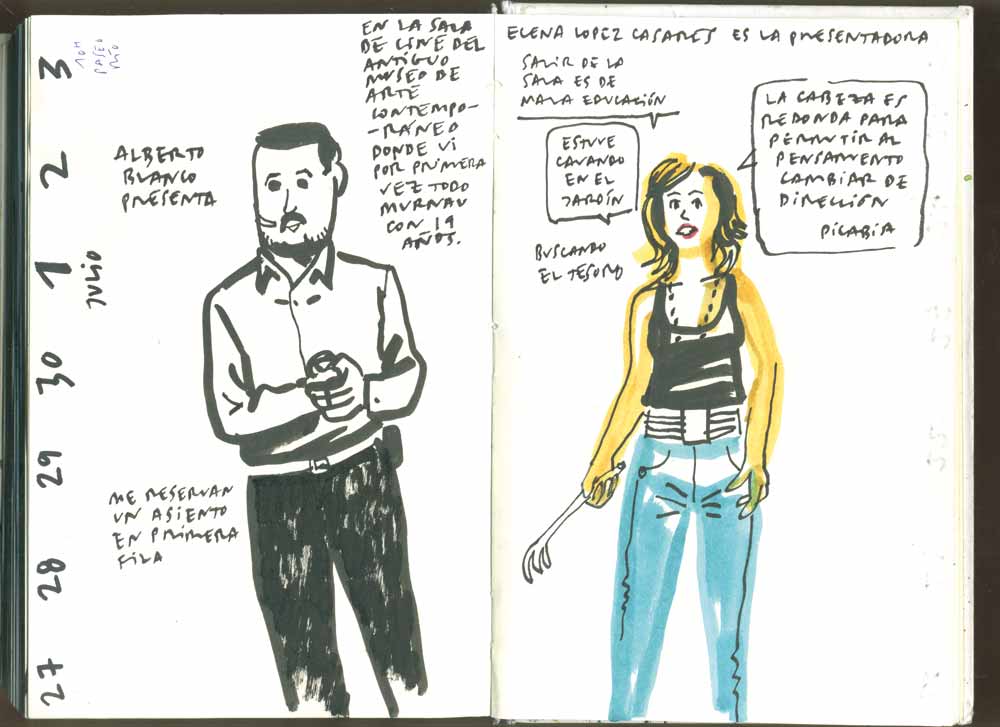 3
10H
PASEO
RÍO
2
1
JULIO
30
29
28
27
ALBERTO
BLANCO
PRESENTA
EN LA SALA
DE CINE DEL
ANTIGUO
MUSEO DE
ARTE
CONTEMPO-
-RÁNEO
DONDE VI
POR PRIMERA
VEZ TODO
MURNAU
CON 19
AÑOS.
ME RESERVAN
UN ASIENTO
EN PRIMERA
FILA
ELENA LOPEZ CASARES ES LA PRESENTADORA
SALIR DE LA
SALA ES DE
MALA EDUCACIÓN
ESTUVE
CAVANDO
EN EL
JARDÍN
BUSCANDO
EL TESORO
LA CABEZA ES
REDONDA PARA
PERMITIR AL
PENSAMIENTO
CAMBIAR DE
DIRECCIÓN
PICABIA